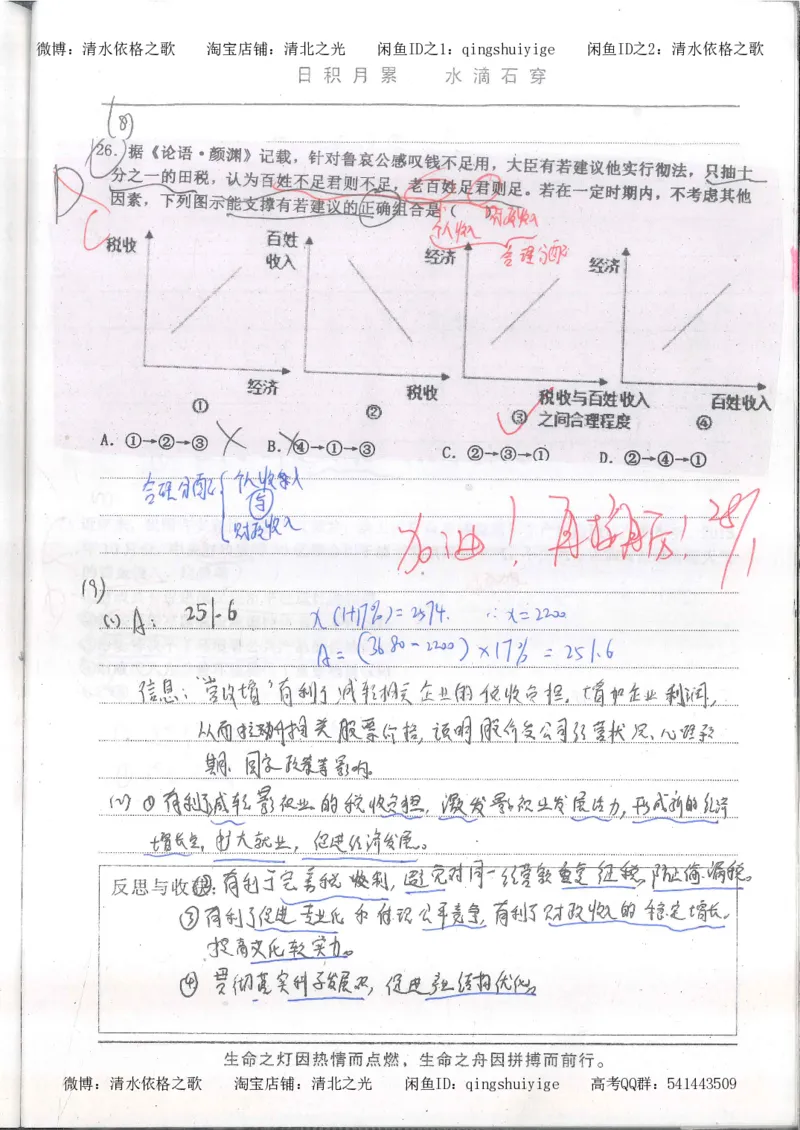 微博：清水依格之歌 淘宝店铺：清北之光 闲鱼ID之1：qingshuiyige 闲鱼ID之2：清水依格之歌
日积月累 水滴石穿
(8)
26. 据《论语·颜渊》记载，针对鲁哀公感叹钱不足用，大臣有若建议他实行彻法，只抽十
分之一的田税，认为百姓不足君则不足，老百姓足君则足。若在一定时期内，不考虑其他
因素，下列图示能支撑有若建议的正确组合是（ ）
D
C
个人收入 财政收入
合理分配
税收
百姓
收入
经济
经济
经济
税收
税收与百姓收入
之间合理程度
百姓收入
① ② ③ ④
A. ①→②→③ B. ④→①→③ C. ②→③→① D. ②→④→①
合理分配 个人收入
与
财政收入
加油！再接再厉！28/1
(9)
(1) A: 251.6 x(1+17%)=2574. ∴x=2200
A=(3680-2200)×17%=251.6
信息："营改增"有利于减轻相关企业的税收负担，增加企业利润，
从而拉动相关股票价格，说明股价受公司经营状况、心理预
期、国家政策等影响。
(2) ①有利于减轻影视业的税收负担，激发影视业发展活力，形成新的经济
增长点，扩大就业，促进经济发展。
反思与收 ②：有利于完善税收制，避免对同一经营额重复征税，防止偷漏税。
③有利于促进专业化和体现公平竞争，有利于财政收入的稳定增长，
提高文化软实力。
④贯彻落实科学发展观，促进产业结构优化。
生命之灯因热情而点燃，生命之舟因拼搏而前行。
微博：清水依格之歌 淘宝店铺：清北之光 闲鱼ID：qingshuiyige 高考QQ群：541443509